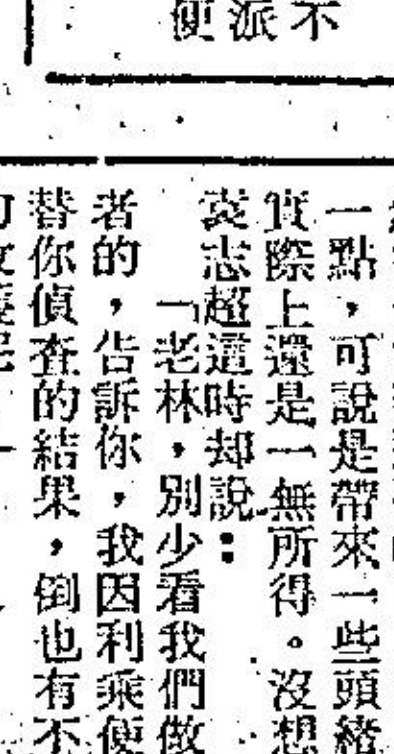 不
派
便
一點，可說是帶來一些頭緒
實際上還是一無所得。沒想
袁志超這時却說：
「老林，別少看我們做
者的，告訴你，我因利乘便
替你偵查的結果，倒也有不